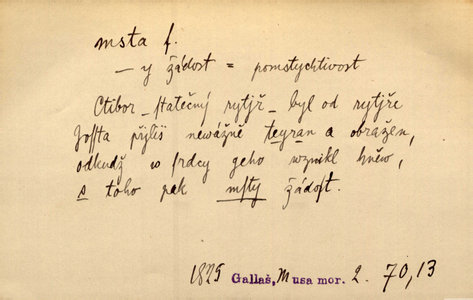 msta f.
— y žádost = pomstychtivost
Ctibor – statečný rytjř – byl od rytjře
Jossta přjliš newážně teyran a obražen,
odkudž w srdcy geho wznikl hněw,
a toho pak msty žádost.
1825 Gallaš, Musa mor. 2. 70,13